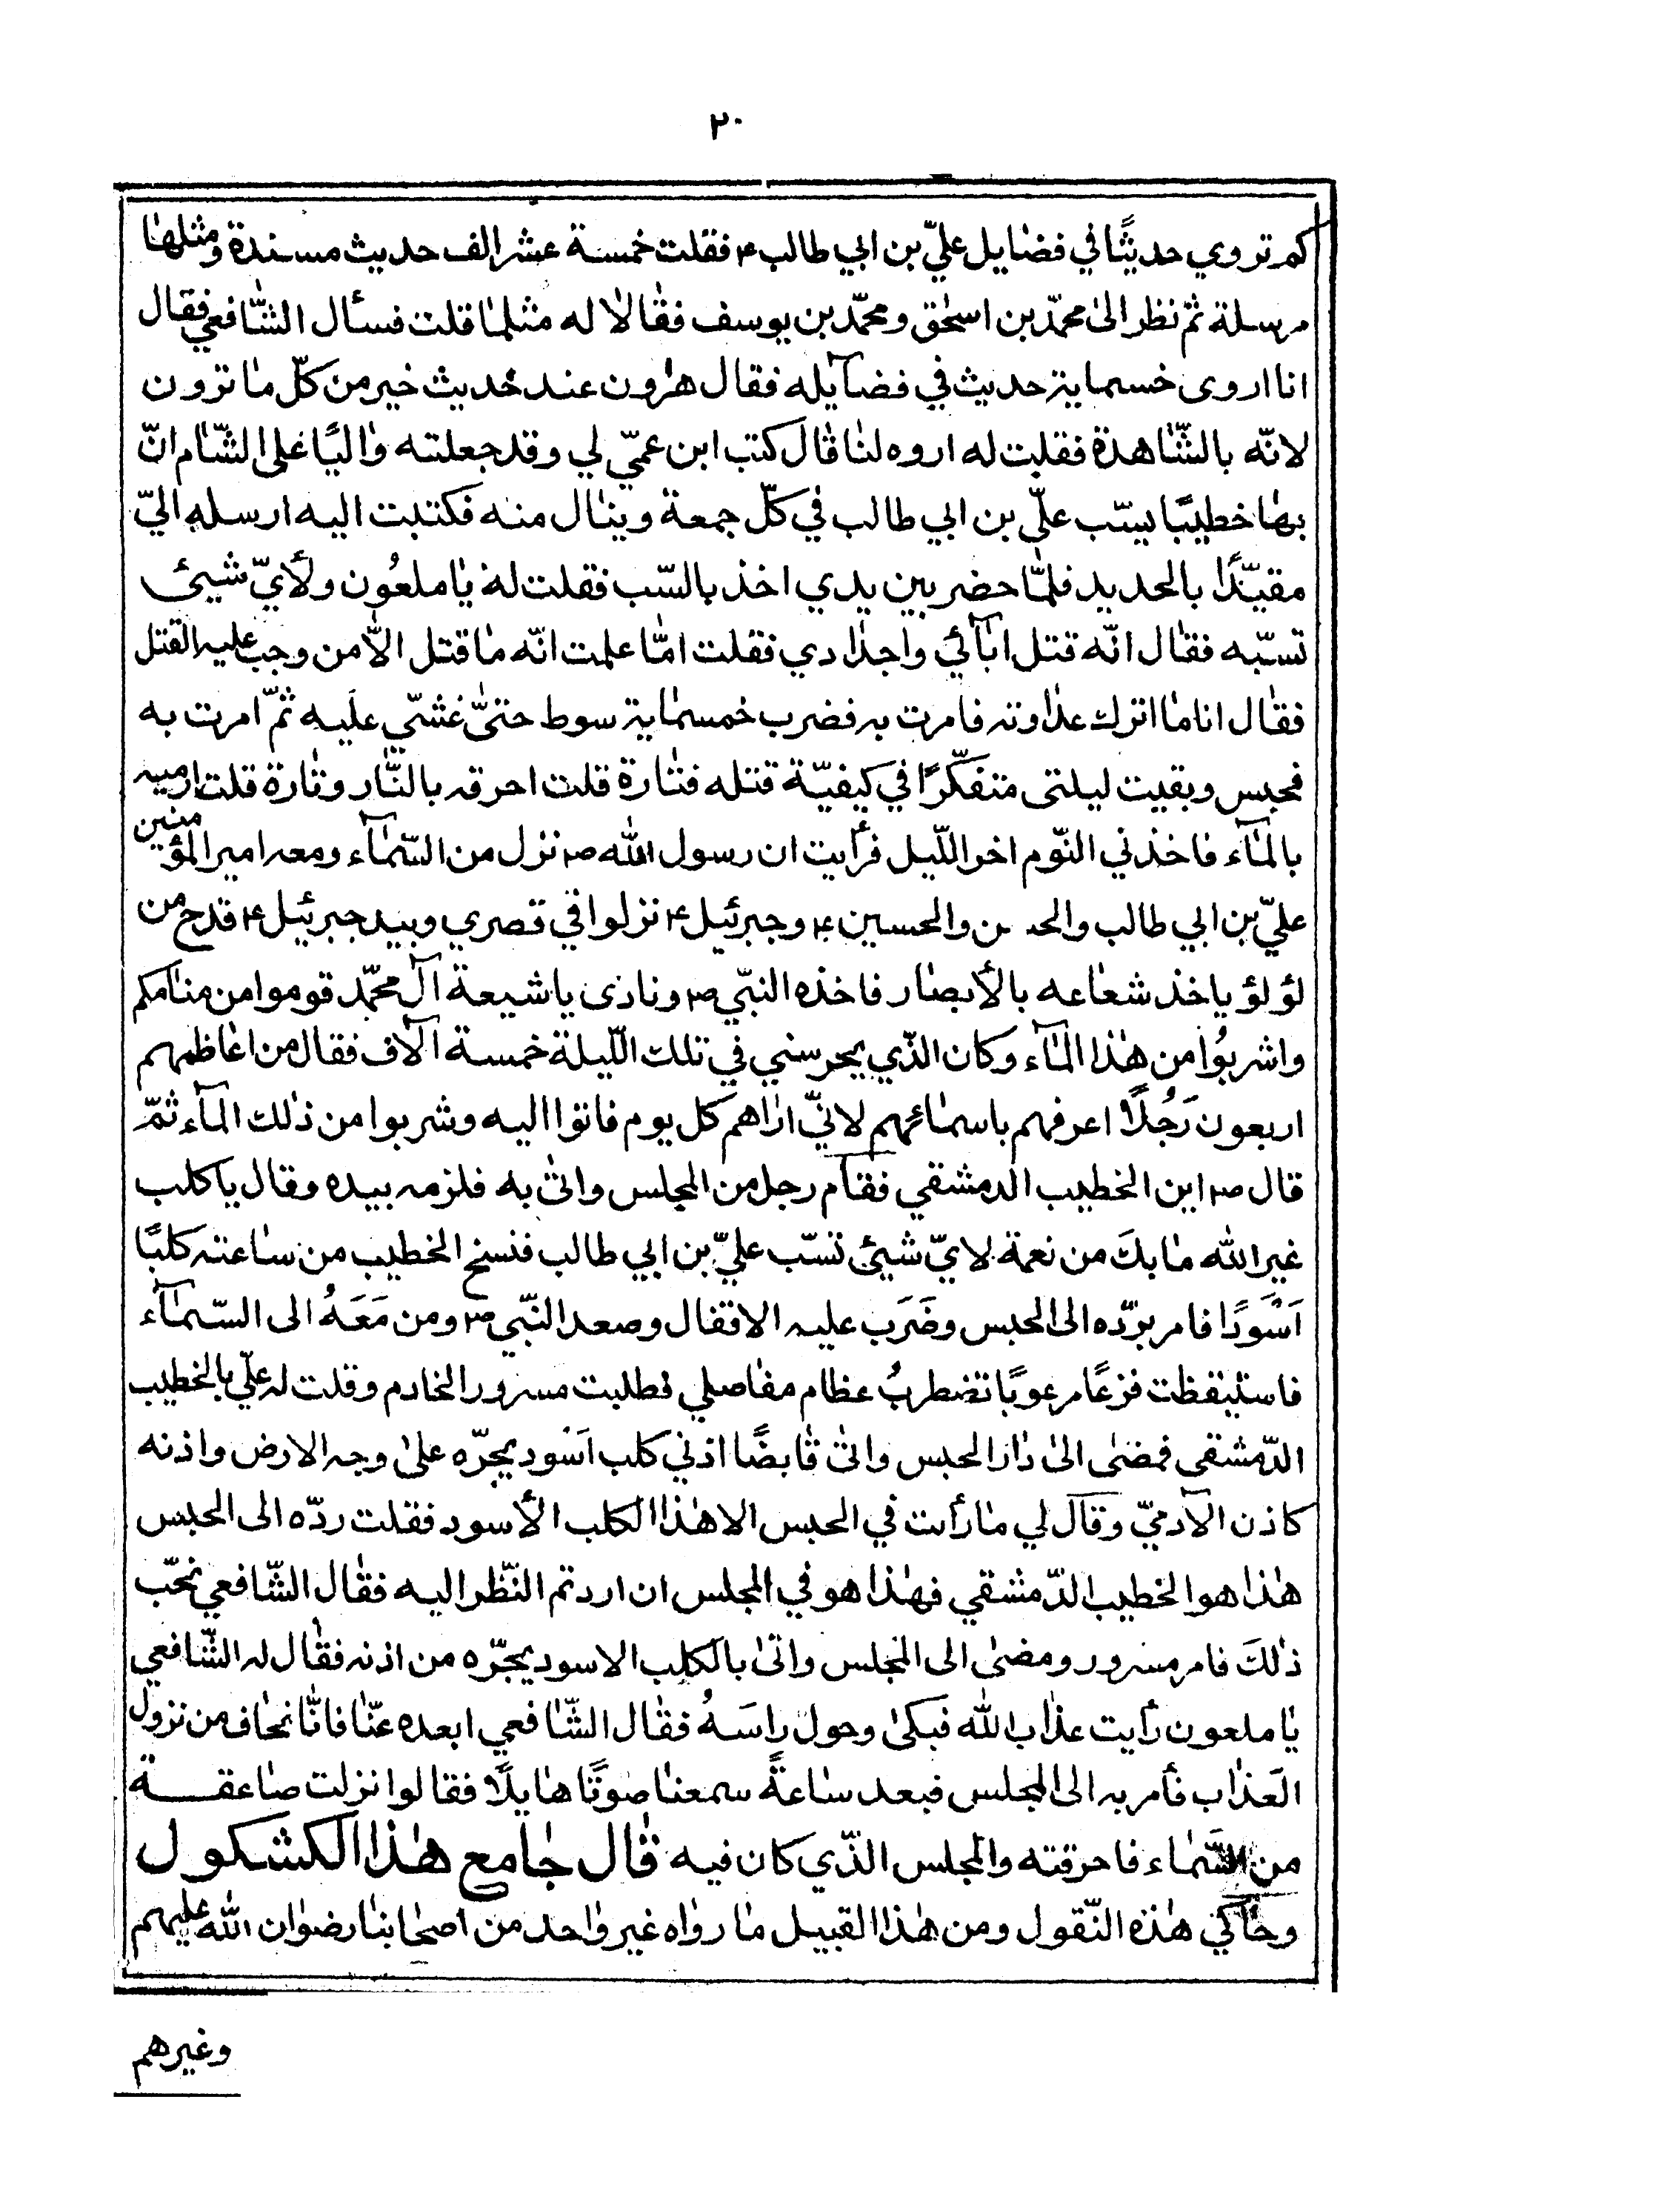 ٢٠
كم تروي حديثًا في فضايل عليّ بن ابي طالب ع فقلت خمسة عشر الف حديث مسندة ومثلها
مرسلة ثمّ نظر الى محمّد بن اسحٰق ومحمّد بن يوسف فقالا له مثلما قلت فسأل الشّافعي فقال
انا اروى خمسماية حديث في فضآيله فقال هٰرون عند حديث خير من كلّ ما ترون
لانّه بالشّاهدة فقلت له اروه لنا قال كتب ابن عمّي لي وقد جعلته واليًا على الشّام انّ
بها خطيبًا يسّب علّي بن ابي طالب في كلّ جمعة وينال منه فكتبت اليه ارسله اليّ
مقيّدًا بالحديد فلمّا حضر بين يدي اخذ بالسّب فقلت له يا ملعُون ولأيّ شيئ
تسبّه فقال انّه قتل اٰبآئي واجدادي فقلت امّا علمت انّه ما قتل الاّ من وجب عليه القتل
فقال انا ما اترك عداوته فامرت به فضرب خمسماية سوط حتىّ غشّي علَيه ثمّ امرت به
فحبس وبقيت ليلتى متفكّرًا في كيفيّة قتله فتارة قلت احرقه بالنّار وتارة قلت ارميه
بالمآء فاخذني النّوم اخر اللّيل فرأيت ان رسول الله ص نزل من السّمآء ومعه امير المؤمنين
عليّ بن ابي طالب والحسن والحسين ع وجبرئيل ع نزلوا في قصري وبيد جبرئيل ع قدح من
لؤلؤ ياخذ شعاعه بالأبصار فاخذه النبّي ص ونادى يا شيعة آل محمّد قوموا من منامكم
واشربُوا من هٰذا المآء وكان الذّي يحرسني في تلك اللّيلة خمسة آلاف فقال من اعاظمهم
اربعون رَجُلاً اعرفهم باسمائهم لانيّ اراهم كل يوم فاتوا اليه وشربوا من ذٰلك المآء ثمّ
قال ص اين الخطيب الدمشقي فقام رجل من المجلس واتىٰ به فلزمه بيده وقال يا كلب
غير الله ما بكَ من نعمة لايّ شيئ تسّب عليّ بن ابي طالب فنسخ الخطيب من ساعته كلبًا
اَسْوَدًا فامر بردّه الى الحبس وضَرَب عليه الاقفال وصعد النبّي ص ومن مَعَهُ الى السّمآء
فاستيقظت فزعًا مرعوبًا تضطربُ عظام مفاصلي فطلبت مسرور الخادم وقلت له علّي بالخطيب
الدّمشقي فمضى الىٰ دار الحبس واتىٰ قابضًا اذني كلب اسود يجرّه علىٰ وجه الارض واذنه
كاذن الآدميّ وقال لي ما رأيت في الحبس الا هٰذا الكلب الأسود فقلت ردّه الى الحبس
هٰذا هو الخطيب الدّمشقي فهٰذا هو في المجلس ان اردتم النّظر اليه فقال الشّافعي نحّب
ذٰلكَ فامر مسرور ومضىٰ الى المجلس واتىٰ بالكلب الاسود يجرّه من اذنه فقال له الشّافعي
يا ملعون رأيت عذاب الله فبكىٰ وحول راسَهُ فقال الشّافعي ابعده عنّا فانّا نخاف من نزول
العَذاب فأمر به الى المجلس فبعد ساعةً سمعنا صوتًا هايلًا فقالوا نزلت صاعقة
من السَّماء فاحرقته والمجلس الذّي كان فيه قال جامع هٰذا الكشكول
وحاكي هٰذه النّقول ومن هٰذا القبيل ما رواه غير واحد من اصحابنا رضوان الله عليهم
وغيرهم